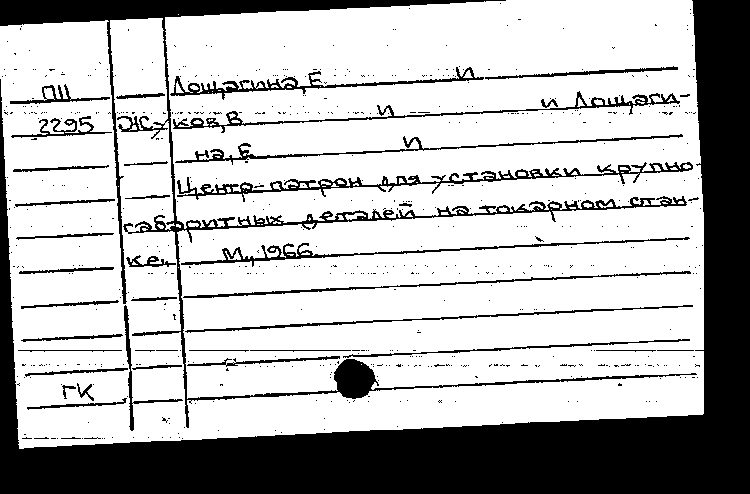 П11 Лощагина, Е. И
2295 Жуков, В. И и Лощаги-
на, Е. И
Центр-патрон для установки крупно
габаритных деталей на токарном стан-
ке. М., 1966.
ГК